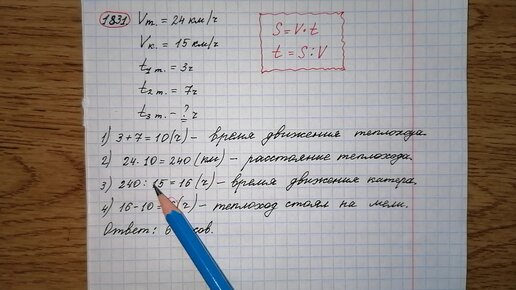 1831
Vт. = 24 км/ч
Vк. = 15 км/ч
t1 т. = 3ч
t2 т. = 7ч
t3 т. - ? ч
S = V · t
t = S : V
1) 3 + 7 = 10 (ч) - время движения теплохода.
2) 24 · 10 = 240 (км) - расстояние теплохода.
3) 240 : 15 = 16 (ч) - время движения катера.
4) 16 - 10 = (ч) - теплоход стоял на мели.
Ответ: 6